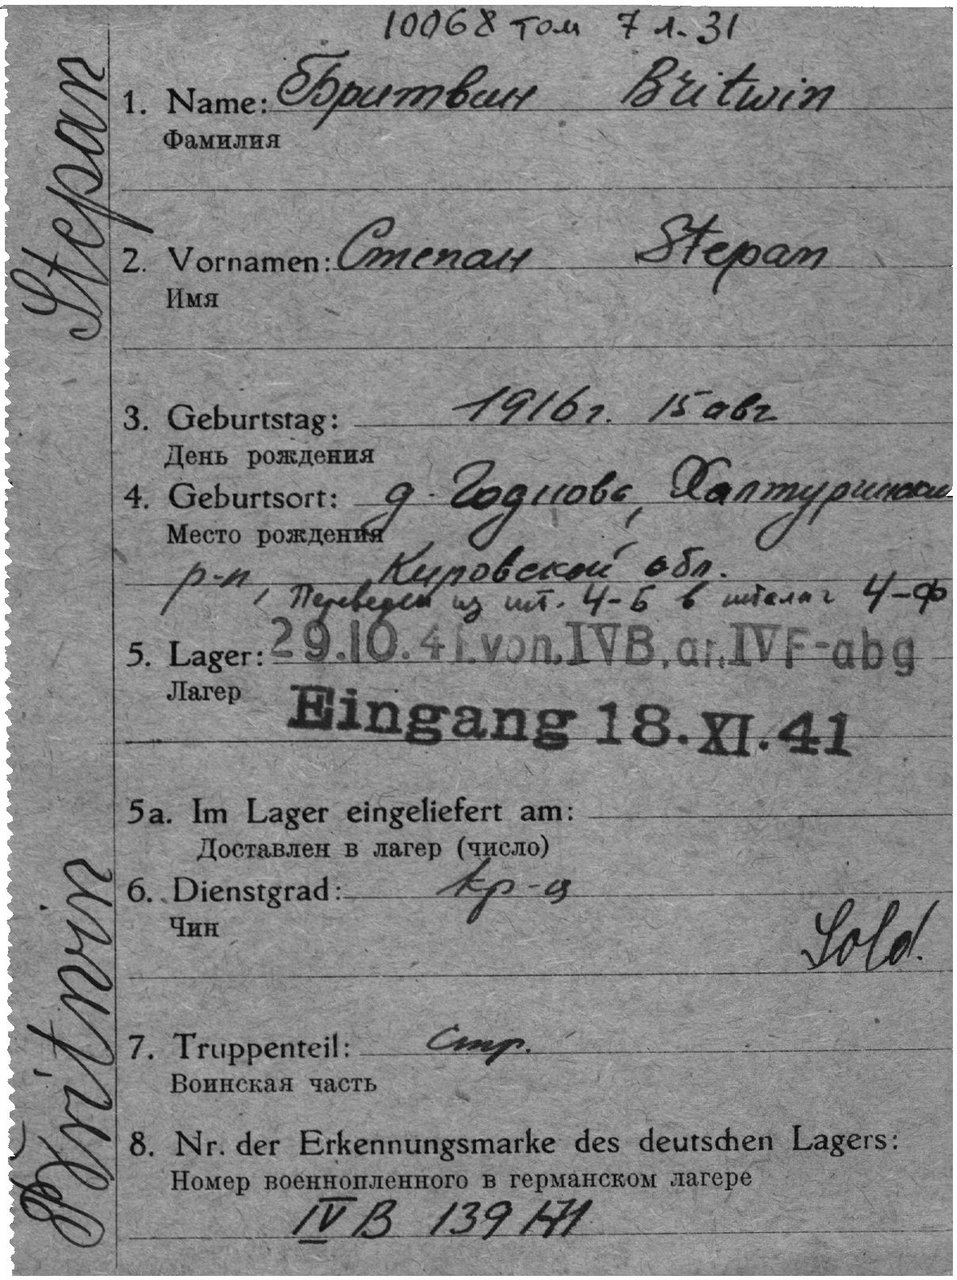 10068 том 7 л. 31
1. Name: Бритвин Britwin
Фамилия
2. Vornamen: Степан Stepan
Имя
3. Geburtstag: 1916 г. 15 авг
День рождения
4. Geburtsort: д. Годново, Халтуринский
Место рождения
р-н, Кировской обл.
Переведен из шт. 4-Б в шталаг 4-Ф
5. Lager: 29.10.41.von.IVB.an.IVF-abg
Лагер
Eingang 18.XI.41
5a. Im Lager eingeliefert am:
Доставлен в лагер (число)
6. Dienstgrad: кр-ц
Чин
Sold.
7. Truppenteil: Стр.
Воинская часть
8. Nr. der Erkennungsmarke des deutschen Lagers:
Номер военнопленного в германском лагере
IV B 139
Britwin Stepan